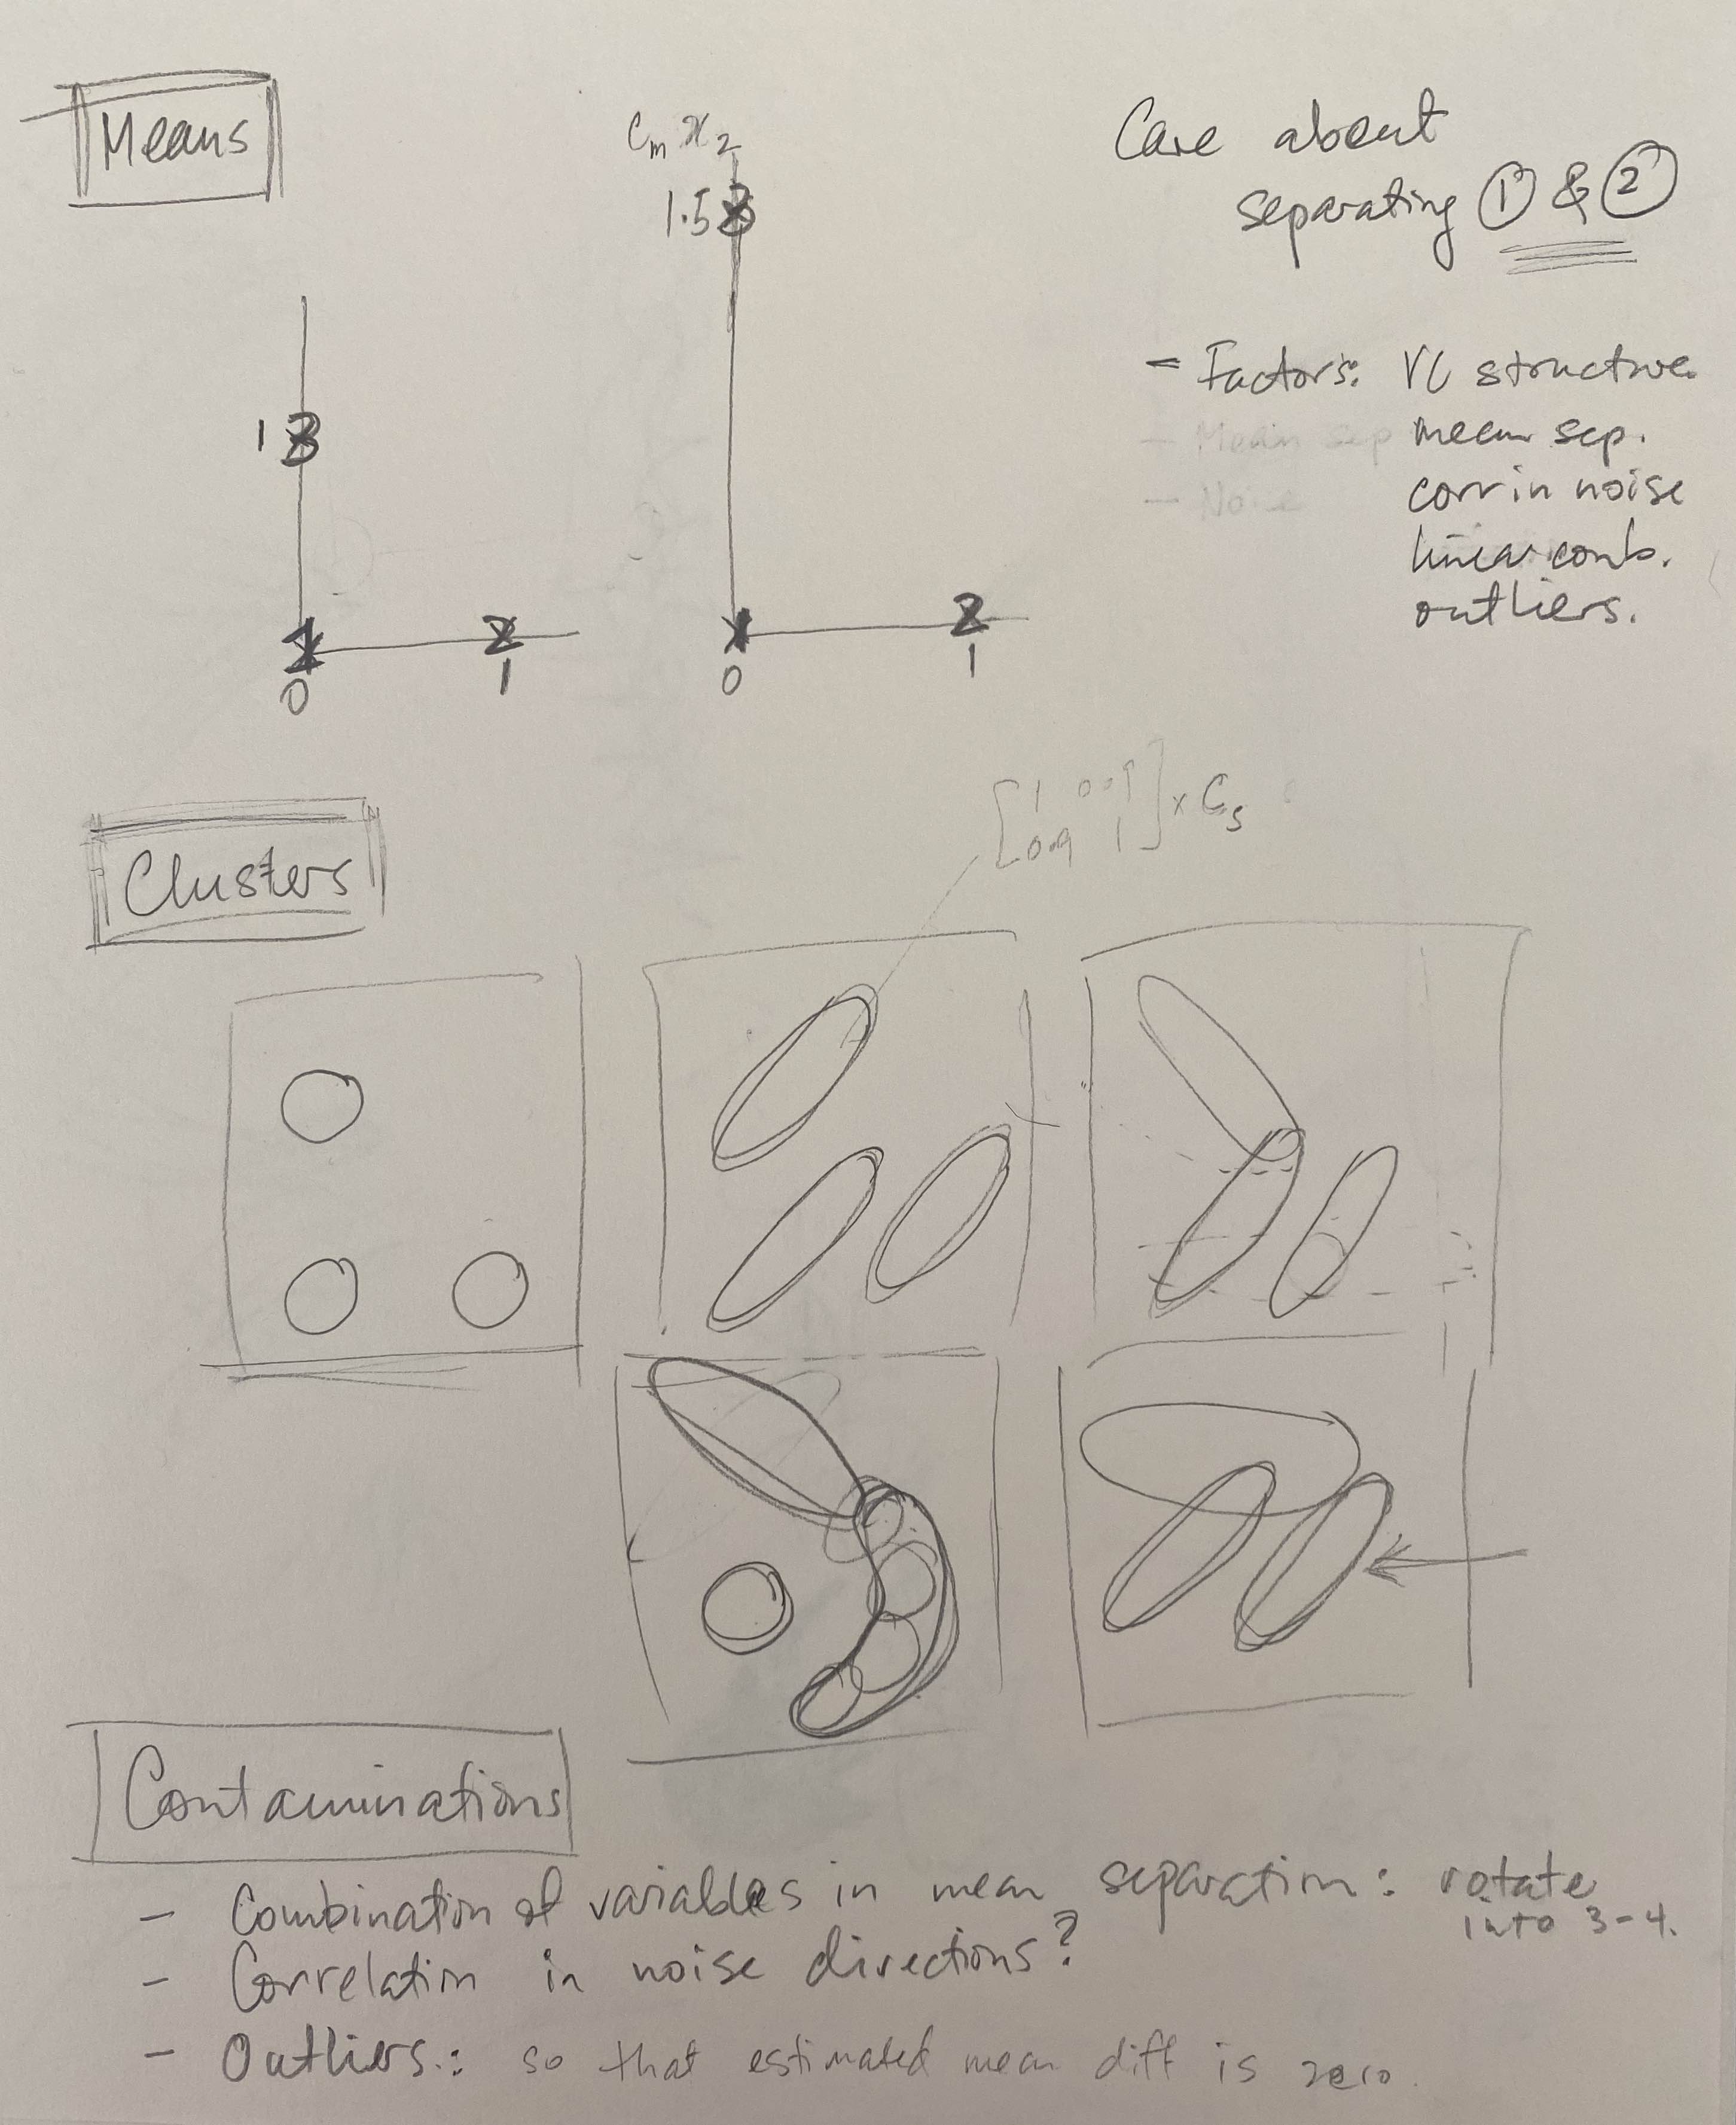 Means
Cm x2
1.5 3
1 3
1
2
0
1
2
0
1
Care about
separating ① & ②
- Factors: VC structure.
- Mean sep mean sep.
- Noise corr in noise
linear comb.
outliers.
Clusters
[1 0.9
0.9 1] x Cs
Contaminations
- Combination of variables in mean separation: rotate
into 3-4.
- Correlation in noise directions?
- Outliers.: so that estimated mean diff is zero.